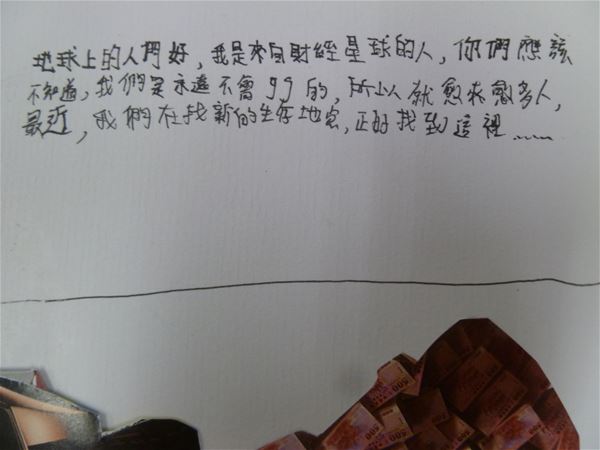 地球上的人們好,我是來自財經星球的人,你們應該
不知道,我們是永遠不會gg的,所以就愈來愈多人,
最近,我們在找新的生存地點,正好找到這裡……
500
500
500